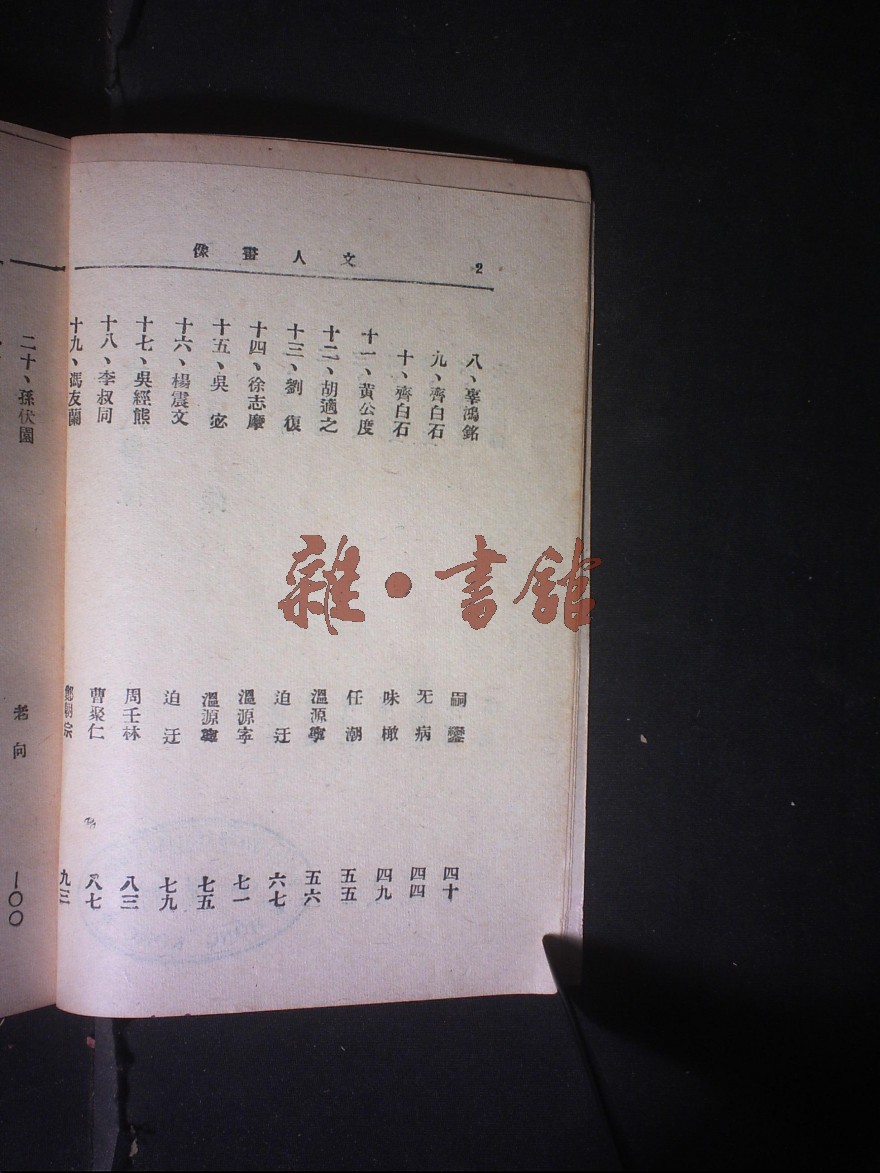 文人畫像 2
八、辜鴻銘 嗣鑾 四十
九、齊白石 旡病 四四
十、齊白石 味橄 四九
十一、黃公度 任潮 五五
十二、胡適之 溫源寧 五六
十三、劉復 迫迂 六七
十四、徐志摩 溫源寧 七一
十五、吳宓 溫源寧 七五
十六、楊震文 迫迂 七九
十七、吳經熊 周壬林 八三
十八、李叔同 曹聚仁 八七
十九、馮友蘭 鄭朝宗 九三
二十、孫伏園 老向 一〇〇
雜·書館